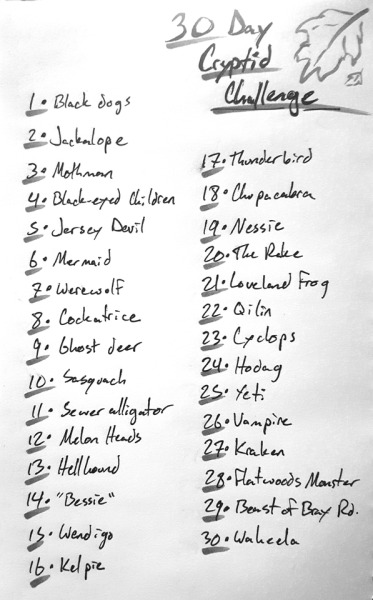 30 Day
Cryptid
Challenge
1. Black dogs
2. Jackalope
3. Mothman
4. Black-eyed Children
5. Jersey Devil
6. Mermaid
7. Werewolf
8. Cockatrice
9. Ghost deer
10. Sasquach
11. Sewer alligator
12. Melon Heads
13. Hellhound
14. "Bessie"
15. Wendigo
16. Kelpie
17. Thunderbird
18. Chupacabra
19. Nessie
20. The Rake
21. Loveland Frog
22. Qilin
23. Cyclops
24. Hodag
25. Yeti
26. Vampire
27. Kraken
28. Flatwoods Monster
29. Beast of Bray Rd.
30. Waheela